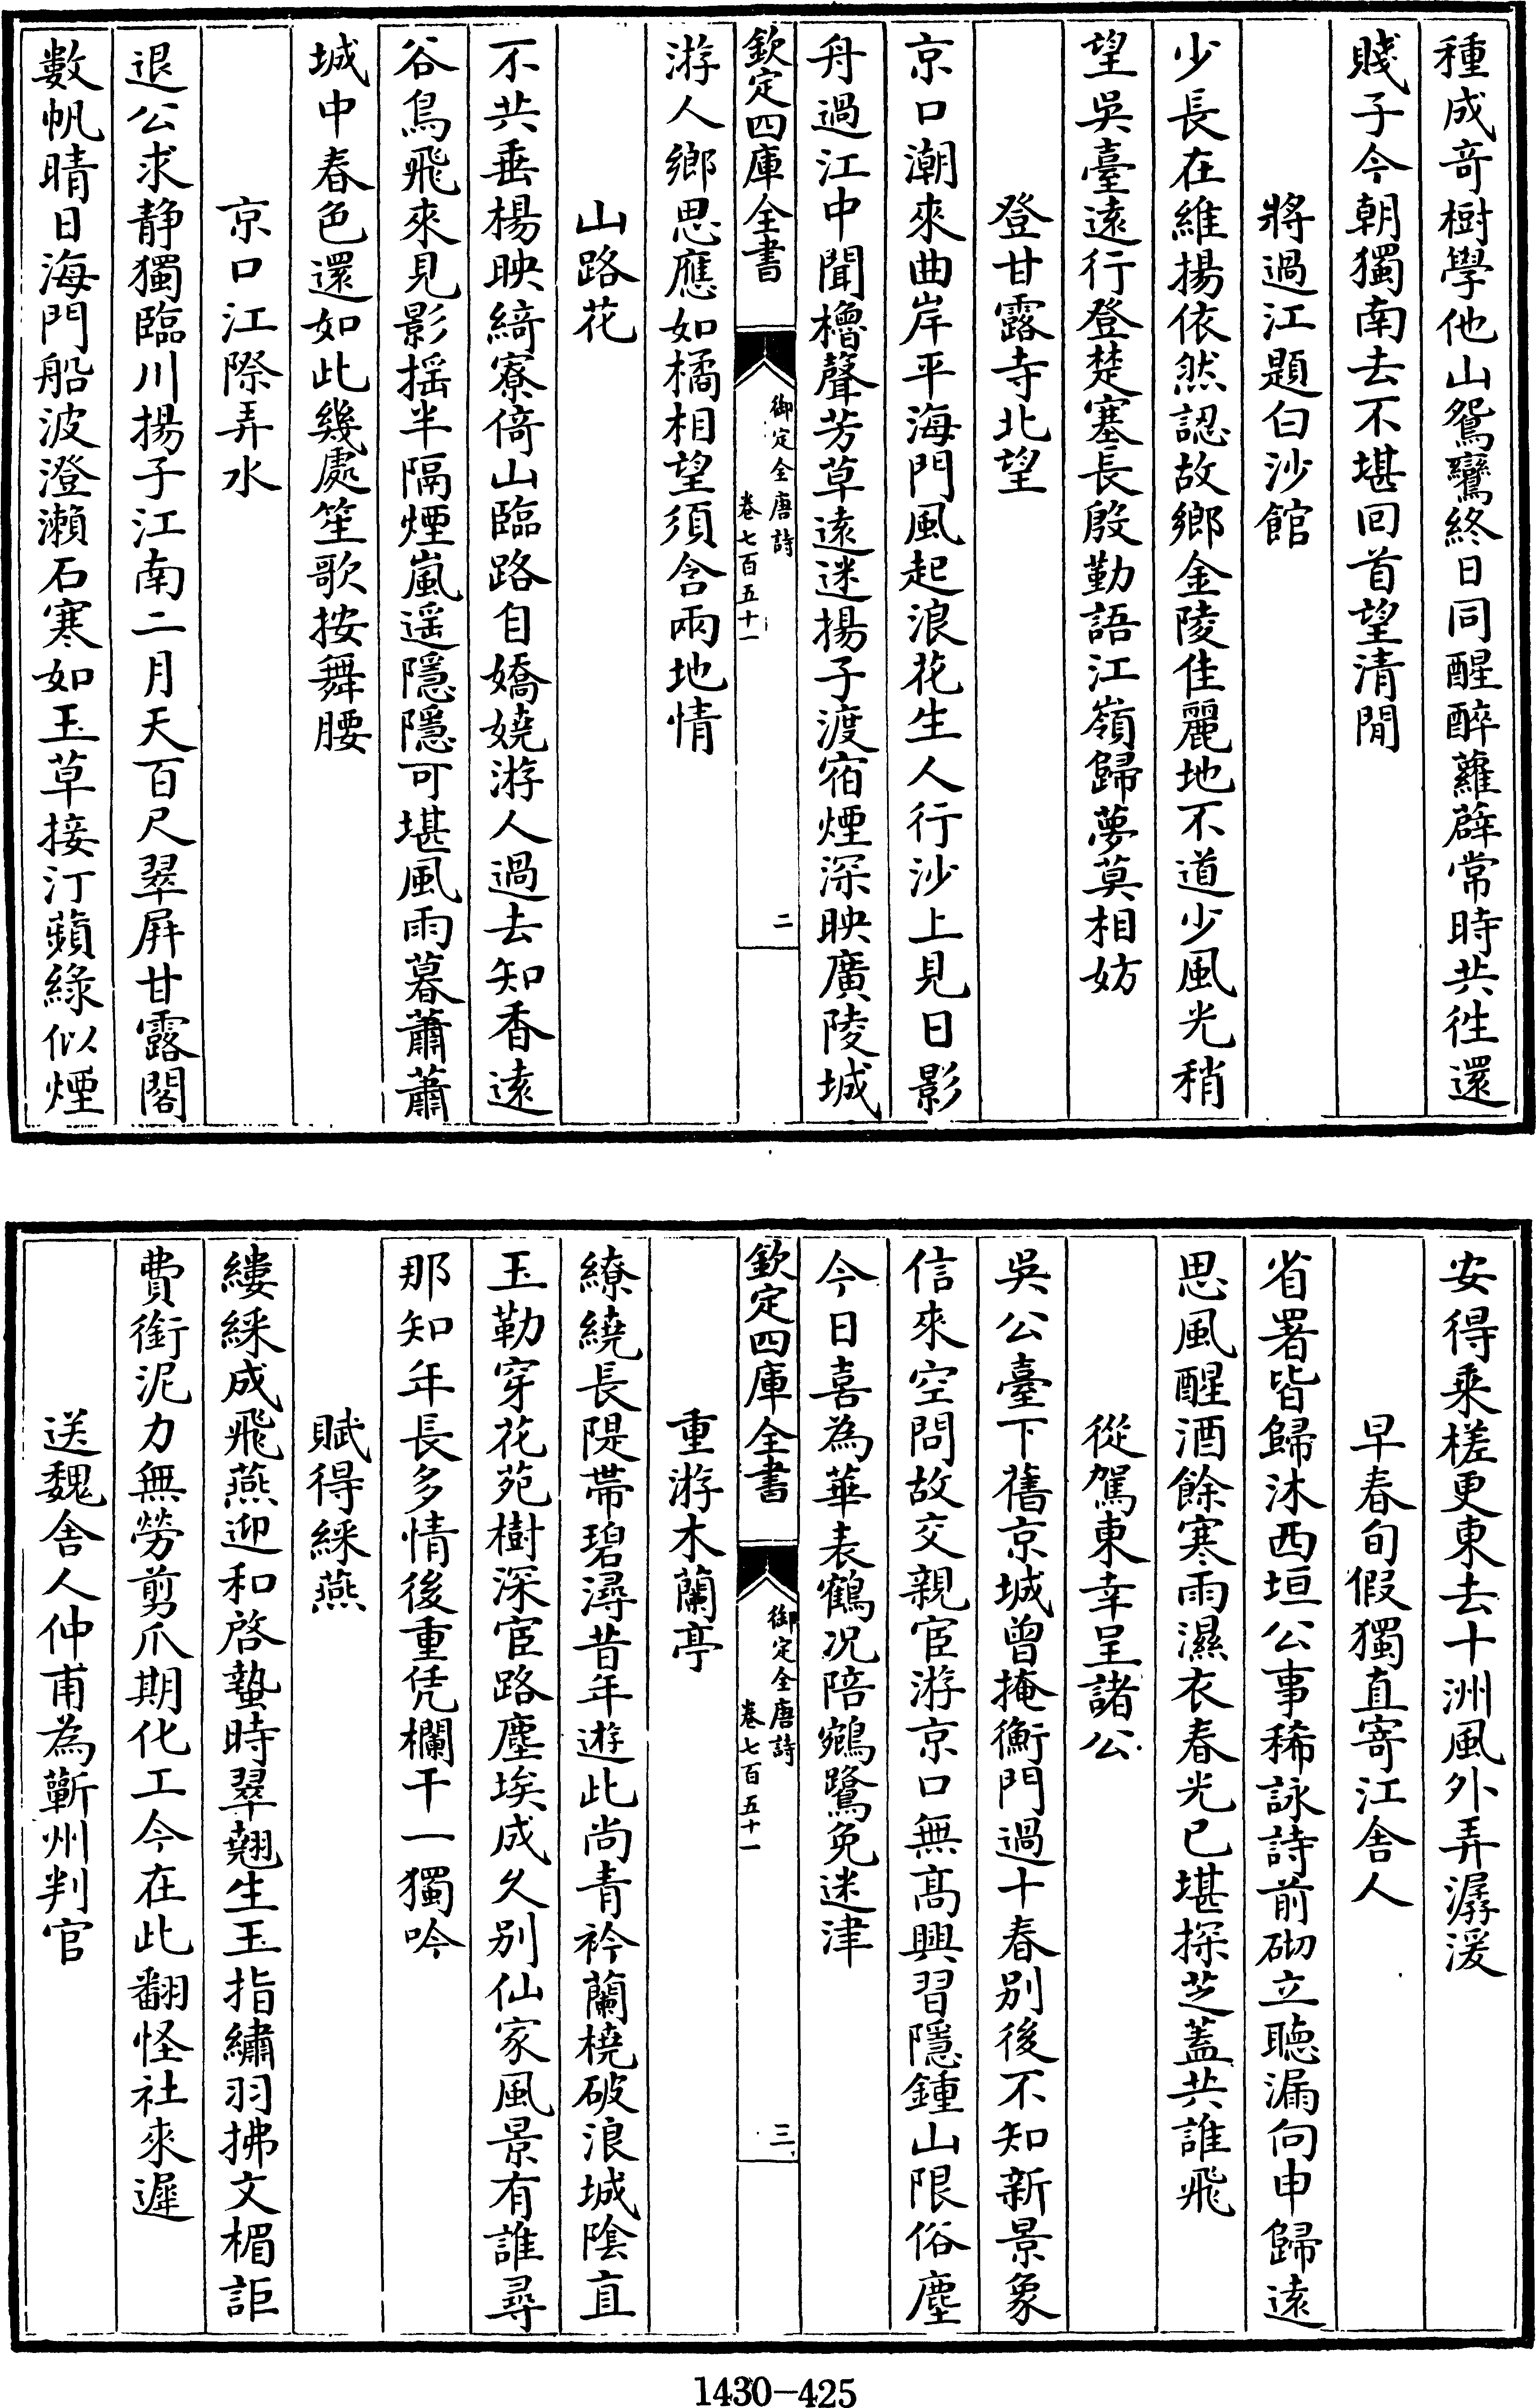 種成竒樹學他山鴛鸞終日同醒醉蘿薜常時共徃還
賤子今朝獨南去不堪回首望清閒
將過江題白沙館
少長在維揚依然認故鄉金陵佳麗地不道少風光稍
望吳臺逺行登楚塞長殷勤語江嶺歸夢莫相妨
登甘露寺北望
京口潮來曲岸平海門風起浪花生人行沙上見日影
舟過江中聞櫓聲芳草逺迷揚子渡宿煙深映廣陵城
欽定四庫全書
御定全唐詩
卷七百五十一
二
游人鄉思應如橘相望須含兩地情
山路花
不共垂楊映綺寮倚山臨路自嬌嬈游人過去知香逺
谷鳥飛來見影揺半隔煙嵐遥隠隠可堪風雨暮蕭蕭
城中春色還如此幾處笙歌按舞腰
京口江際弄水
退公求静獨臨川揚子江南二月天百尺翠屏甘露閣
數帆晴日海門船波澄瀨石寒如玉草接汀蘋緑似煙
安得乘槎更東去十洲風外弄潺湲
早春旬假獨直寄江舍人
省署皆歸沐西垣公事稀詠詩前砌立聴漏向申歸逺
思風醒酒餘寒雨濕衣春光已堪探芝蓋共誰飛
從駕東幸呈諸公
吳公臺下舊京城曾掩衡門過十春别後不知新景象
信來空問故交親宦游京口無髙興習隠鍾山限俗塵
今日喜為華表鶴况陪鵷鷺免迷津
欽定四庫全書
御定全唐詩
卷七百五十一
三
重游木蘭亭
繚繞長隄帶碧潯昔年遊此尚青衿蘭橈破浪城隂直
玉勒穿花苑樹深宦路塵埃成久别仙家風景有誰尋
那知年長多情後重凭欄干一獨吟
賦得綵燕
縷綵成飛燕迎和啓蟄時翠翹生玉指繡羽拂文楣詎
費銜泥力無勞剪爪期化工今在此翻怪社來遲
送魏舍人仲甫為蘄州判官
1430-425